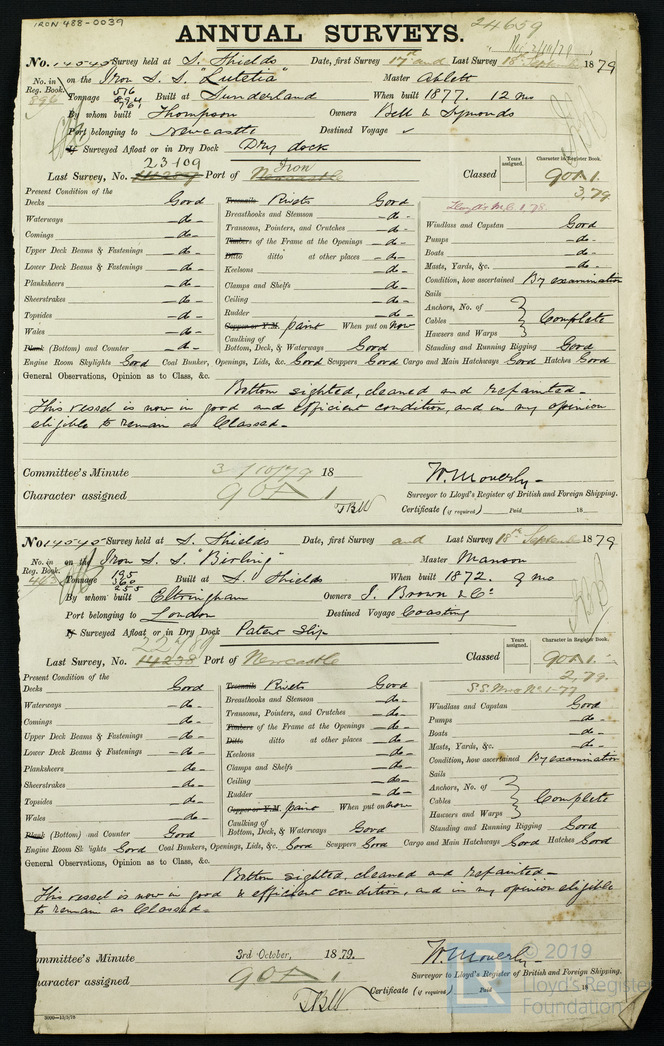 IRON 488-0039
24659
ANNUAL SURVEYS.
Rec 2/10/79
No. 14545 Survey held at S. Shields Date, first Survey 17th and Last Survey 18th September 1879
No. in Reg. Book. 896 on the Iron S. S. "Lutetia" Master Ablett
Tonnage 516 Built at Sunderland When built 1877. 12 mo
By whom built Thompson Owners Bell & Symonds
Port belonging to Newcastle Destined Voyage ✓
If Surveyed Afloat or in Dry Dock Dry dock
23109 Iron
Last Survey, No. 14259 Port of Newcastle Classed Years assigned. Character in Register Book. 90A1.
3,79
Present Condition of the
Decks Good Treenails Rivets Good Lloyd's M.C. 1.78
Waterways -do- Breasthooks and Stemson -do- Windlass and Capstan Good
Comings -do- Transoms, Pointers, and Crutches -do- Pumps -do-
Upper Deck Beams & Fastenings -do- Timbers of the Frame at the Openings -do- Boats -do-
Lower Deck Beams & Fastenings -do- Ditto ditto at other places -do- Masts, Yards, &c. -do-
Planksheers -do- Keelsons -do- Condition, how ascertained By examination
Sheerstrakes -do- Clamps and Shelfs -do- Sails
Topsides -do- Ceiling -do- Anchors, No. of
Wales -do- Rudder -do- Cables } Complete
Plank (Bottom) and Counter -do- Copper or Y.M. paint When put on now Hawsers and Warps
Caulking of Bottom, Deck, & Waterways Good Standing and Running Rigging Good
Engine Room Skylights Good Coal Bunker, Openings, Lids, &c. Good Scuppers Good Cargo and Main Hatchways Good Hatches Good
General Observations, Opinion as to Class, &c.
Bottom sighted, cleaned and repainted-
This vessel is now in good and efficient condition, and in my opinion
eligible to remain as Classed-
Committee's Minute 3/10/79 18 W. Moverly-
Character assigned 90A1 Surveyor to Lloyd's Register of British and Foreign Shipping.
TBW Certificate (if required) Paid 18
No. 14545 Survey held at S. Shields Date, first Survey and Last Survey 18th September 1879
No. in Reg. Book. on the Iron S. S. "Birling" Master Manson
Tonnage 195 360 255 Built at S. Shields When built 1872. 9 mo
By whom built Eltringham Owners J. Brown & Co.
Port belonging to London Destined Voyage Coasting
If Surveyed Afloat or in Dry Dock Patent Slip
22789
Last Survey, No. 14238 Port of Newcastle Classed Years assigned. Character in Register Book. 90A1.
2,79.
Present Condition of the S.S. Nwc No. 1-77
Decks Good Treenails Rivets Good Windlass and Capstan Good
Waterways -do- Breasthooks and Stemson -do- Pumps -do-
Comings -do- Transoms, Pointers, and Crutches -do- Boats -do-
Upper Deck Beams & Fastenings -do- Timbers of the Frame at the Openings -do- Masts, Yards, &c. -do-
Lower Deck Beams & Fastenings -do- Ditto ditto at other places -do- Condition, how ascertained By examination
Planksheers -do- Keelsons -do- Sails
Sheerstrakes -do- Clamps and Shelfs -do- Anchors, No. of
Topsides -do- Ceiling -do- Cables } Complete
Wales -do- Rudder -do- Hawsers and Warps
Plank (Bottom) and Counter Good Copper or Y.M. paint When put on now
Caulking of Bottom, Deck, & Waterways Good Standing and Running Rigging Good
Engine Room Skylights Good Coal Bunkers, Openings, Lids, &c. Good Scuppers Good Cargo and Main Hatchways Good Hatches Good
General Observations, Opinion as to Class, &c.
Bottom sighted, cleaned and repainted-
This vessel is now in good & efficient condition, and in my opinion eligible
to remain as Classed-
ommittee's Minute 3rd October, 1879. W. Moverly-
haracter assigned 90A1 Surveyor to Lloyd's Register of British and Foreign Shipping.
TBW Certificate (if required) Paid 18
© 2019
Lloyd's Register
Foundation
LR